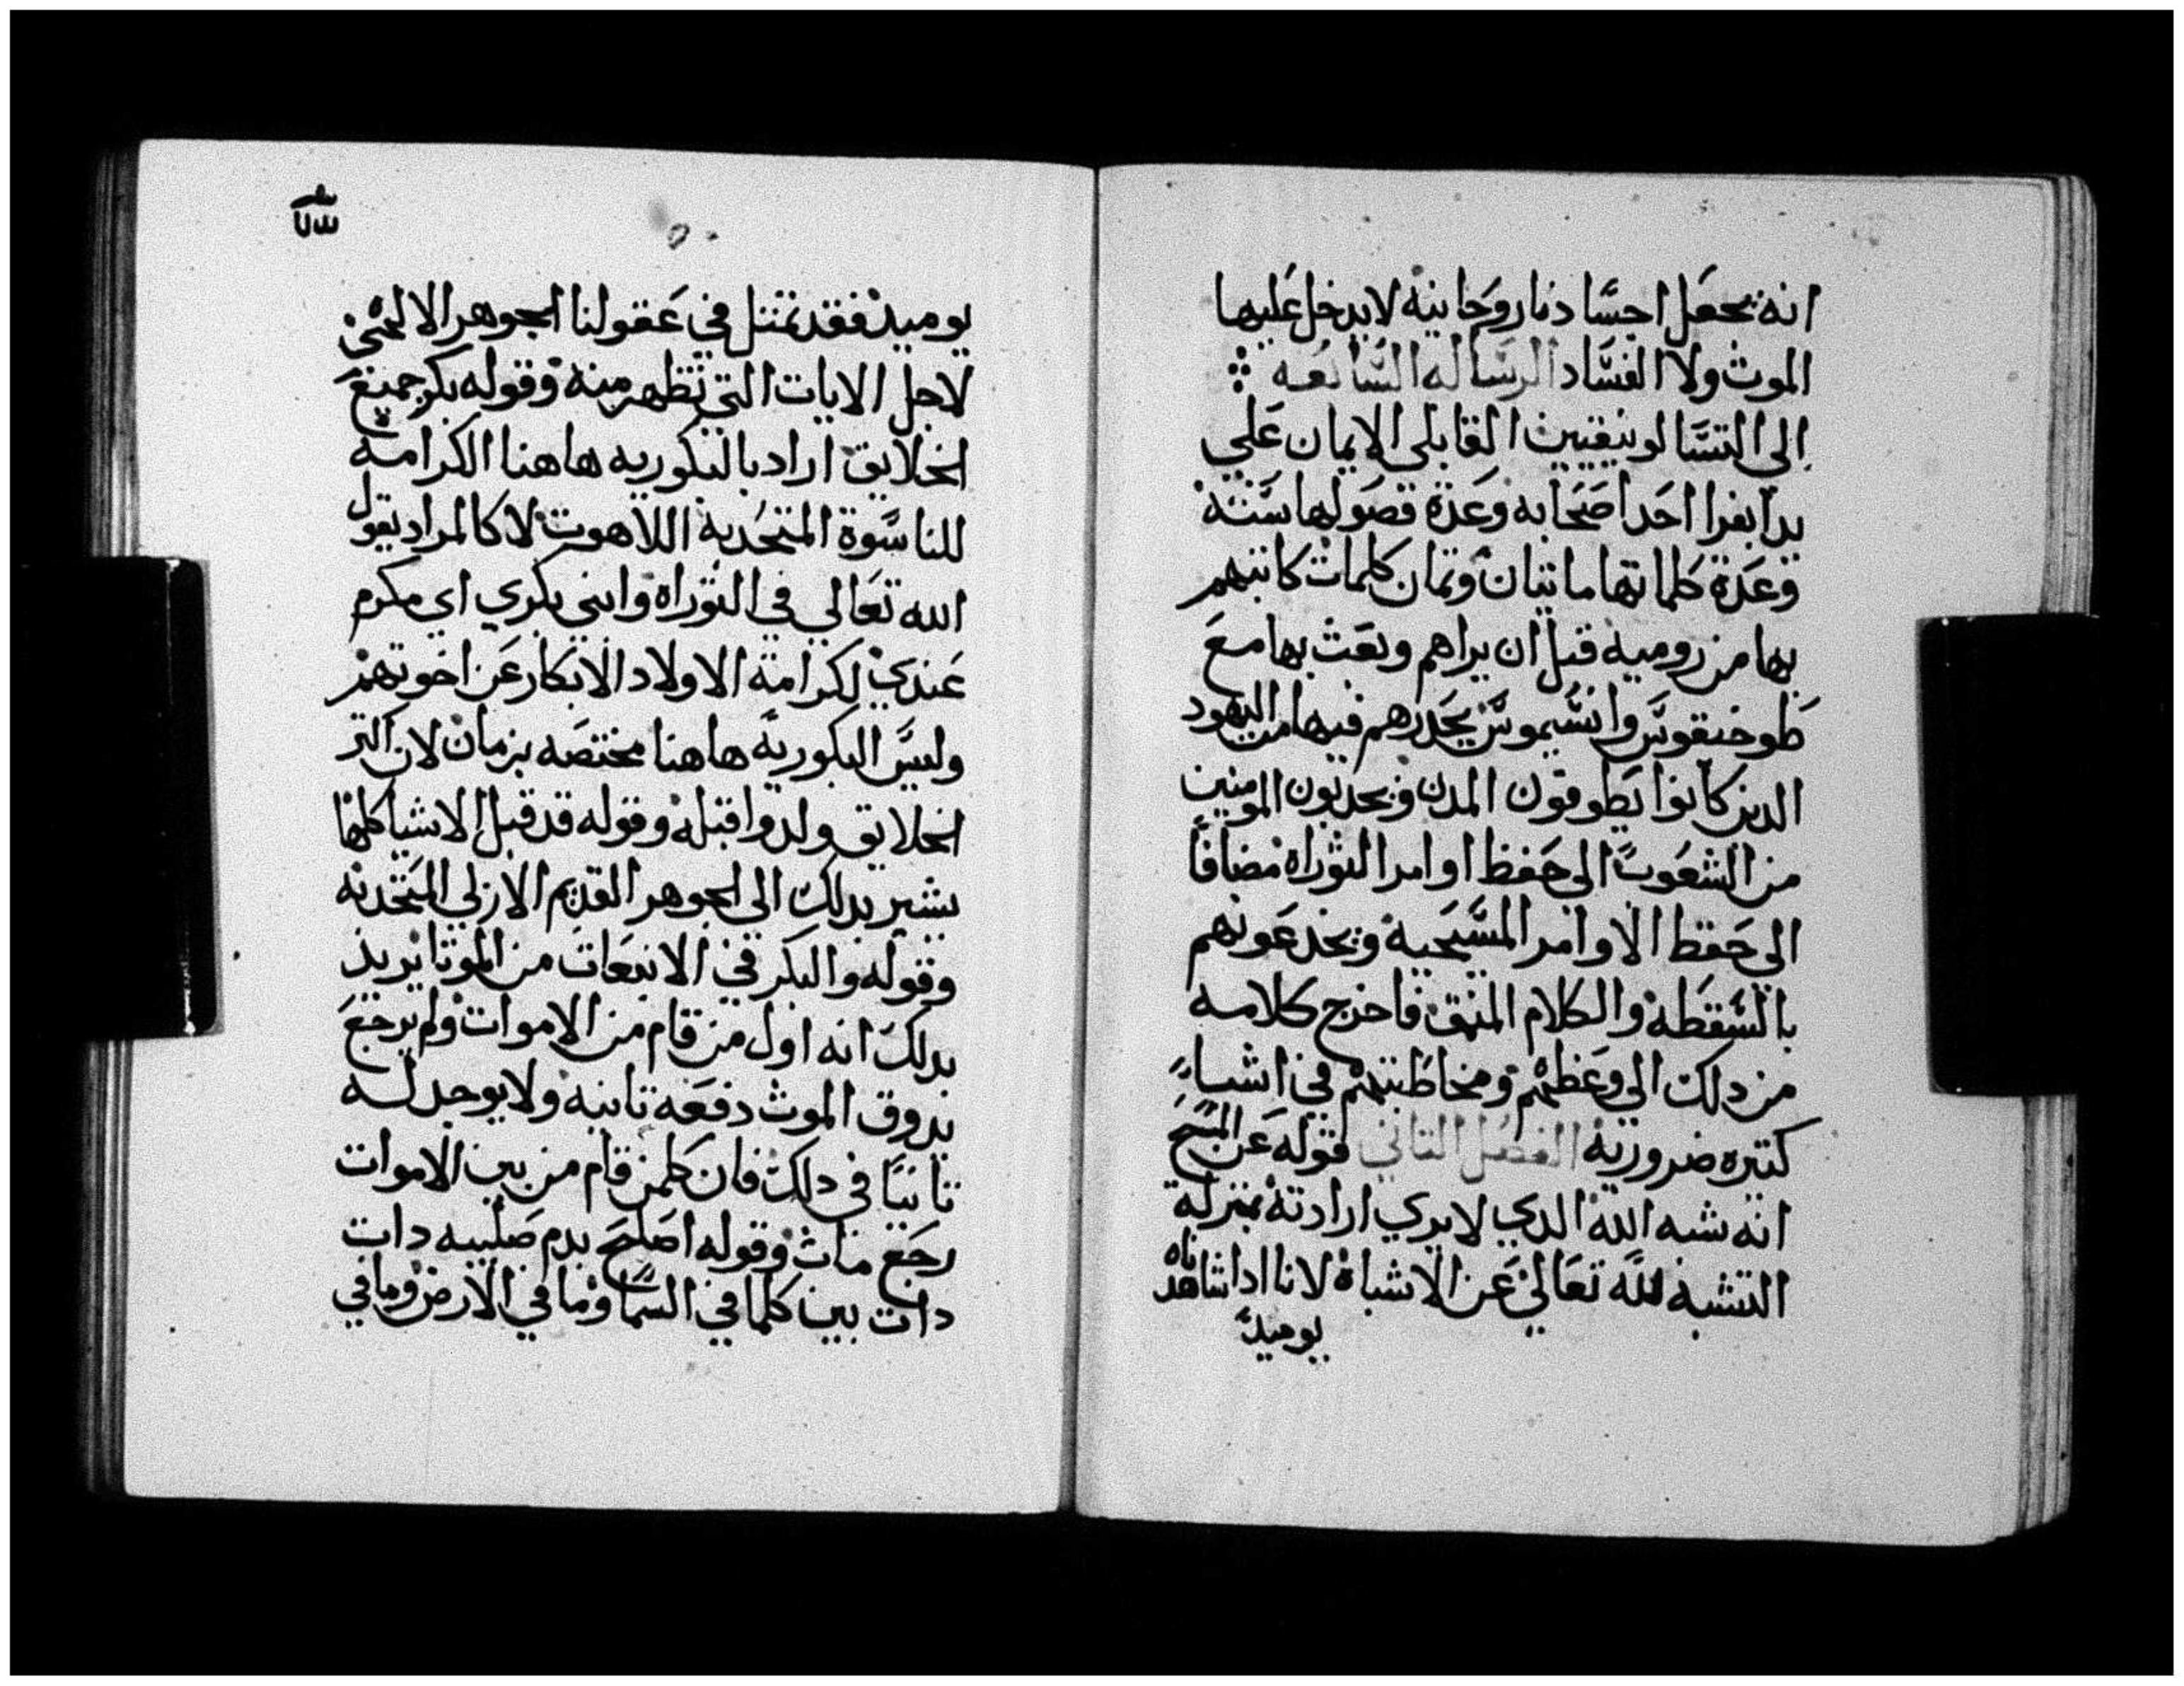 انه يجعل اجسادنا روحانيه لا يدخل عليها
الموت ولا الفساد الرساله السابعه
الي التسالونيقيين القابلي الايمان علي
يد ابفرا احد اصحابه وعدة فصولها سته
وعدة كلماتها مايتان وتمان كلمات كاتبهم
بها من روميه قبل ان يراهم وبعث بها مع
طوخيقوس وانسيموس يحدرهم فيها من اليهود
الدين كانوا يطوفون المدن ويجدبون المومنين
من الشعوب الي حفظ اوامر التوراه مضافا
الي حفظ الاوامر المسيحيه ويخدعونهم
بالسفطه والكلام المنمق فاخرج كلامه
من دلك الي وعظهم ومخاطبتهم في اشياء
كتيره ضروريه الفصل التاني قوله عن المسيح
انه شبه الله الدي لا يري اراد ته بمنزلة
التشبه لله تعالي عن الاشباه لانا ادا شاهدناه
يوميد
يوميد فقد تمتل في عقولنا الجوهر الالهي
لاجل الايات التي تظهر منه وقوله بكر جميع
الخلايق اراد بالبكوريه هاهنا الكرامه
للناسوة المتحد به اللاهوت لا كالمراد بقول
الله تعالي في التوراه وابني بكري اي مكرم
عندي لكرامة الاولاد الابكار عن اخوتهم
وليس البكوريه هاهنا مختصه بزمان لان اكتر
الخلايق ولدوا قبله وقوله قد قبل الاشيا كلها
يشير بدلك الي الجوهر القديم الازلي المتحد به
وقوله والبكر في الانبعات من الموتا يريد
بدلك انه اول من قام من الاموات ولم يرجع
يدوق الموت دفعه تانيه ولا يوجد له
تانيا في دلك فان كلمن قام من بين الاموات
رجع مات وقوله اصلح بدم صليبه دات
دات بين كلما في السما وما في الارض وما في